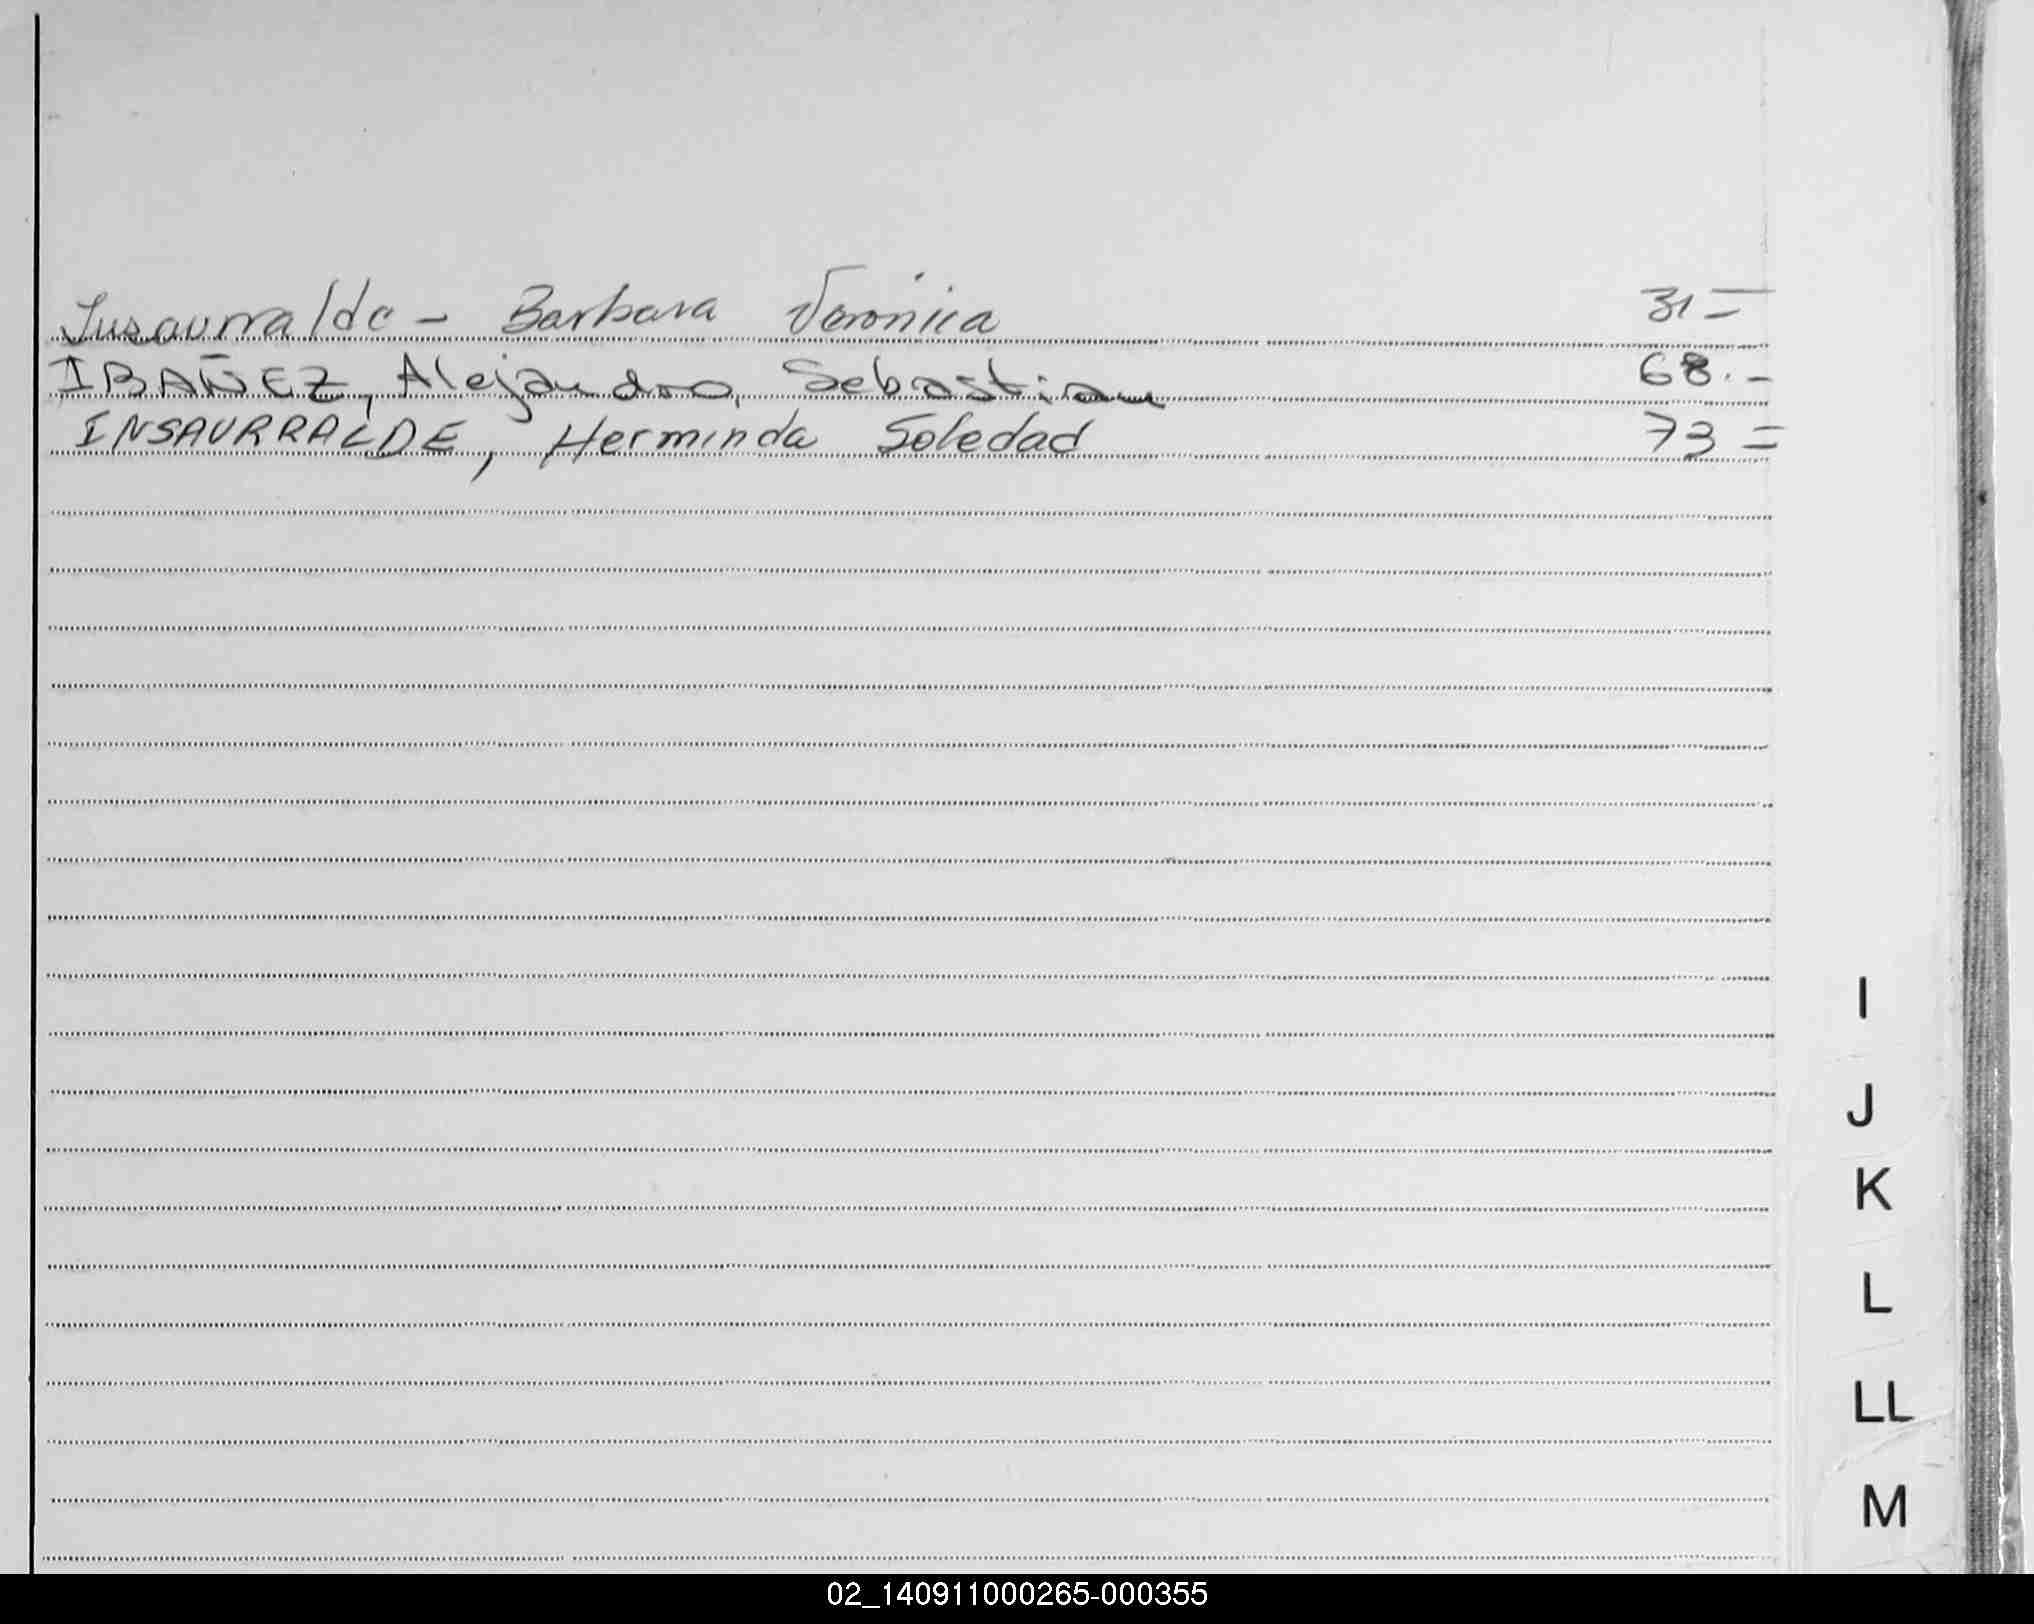 Insaurralde - Barbara Veronica 31 =
IBAÑEZ, Alejandro, Sebastian 68.-
INSAURRALDE, Herminda Soledad 73 =
I
J
K
L
LL
M
02_140911000265-000355